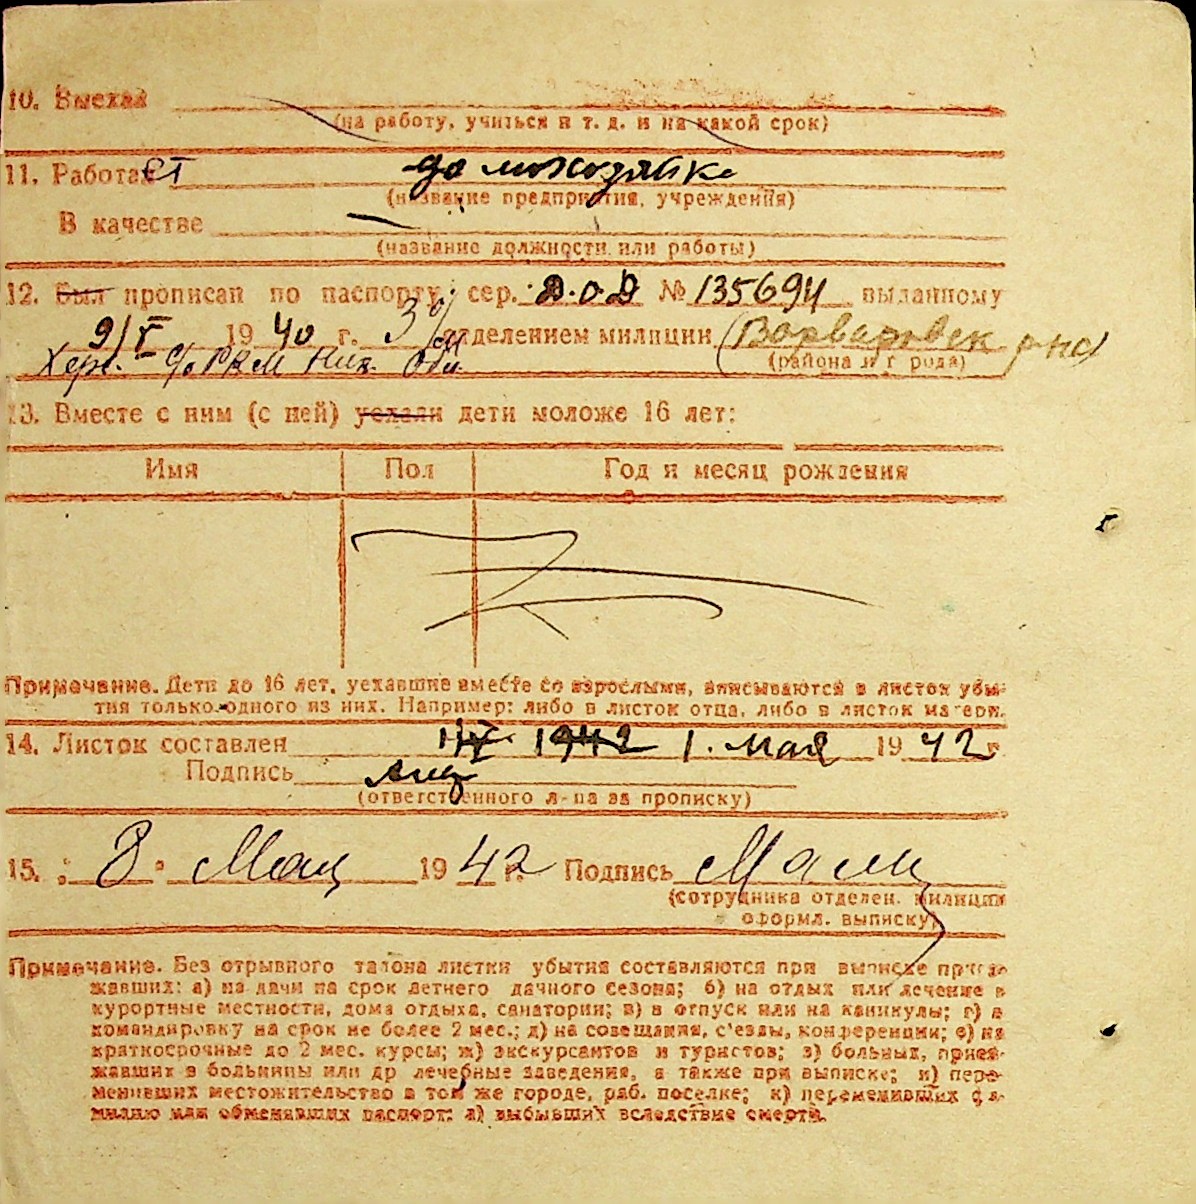 10. Выехал
(на работу, учиться и т. д. и на какой срок)
11. Работает домохозяйка
(название предприятия, учреждения)
В качестве —
(название должности или работы)
12. Был прописан по паспорту: сер. Д.О.Д № 135694 выданному
9/V 1940 г. 3 отделением милиции (Варваровск
(района и города)
Ник. Обл.
13. Вместе с ним (с ней) уехали дети моложе 16 лет:
Имя Пол Год и месяц рождения
Примечание. Дети до 16 лет, уехавшие вместе со взрослыми, вписываются в листок убы-
тия только одного из них. Например: либо в листок отца, либо в листок матери.
14. Листок составлен 1942 1. Мая 1942 г.
Подпись
(ответственного л-ца за прописку)
15. „8" Мая 1942 г. Подпись
(сотрудника отделен. милиции
оформл. выписку)
Примечание. Без отрывного талона листки убытия составляются при выписке приез-
жавших: а) на дачи на срок летнего дачного сезона; б) на отдых или лечение в
курортные местности, дома отдыха, санатории; в) в отпуск или на каникулы; г) в
командировку на срок не более 2 мес.; д) на совещания, с'езды, конференции; е) на
краткосрочные до 2 мес. курсы; ж) экскурсантов и туристов; з) больных, приез-
жавших в больницы или др лечебные заведения, а также при выписке; и) пере-
менивших местожительство в том же городе, раб. поселке; к) переменивших фа-
милию или обменявших паспорт: л) выбывших вследствие смерти.